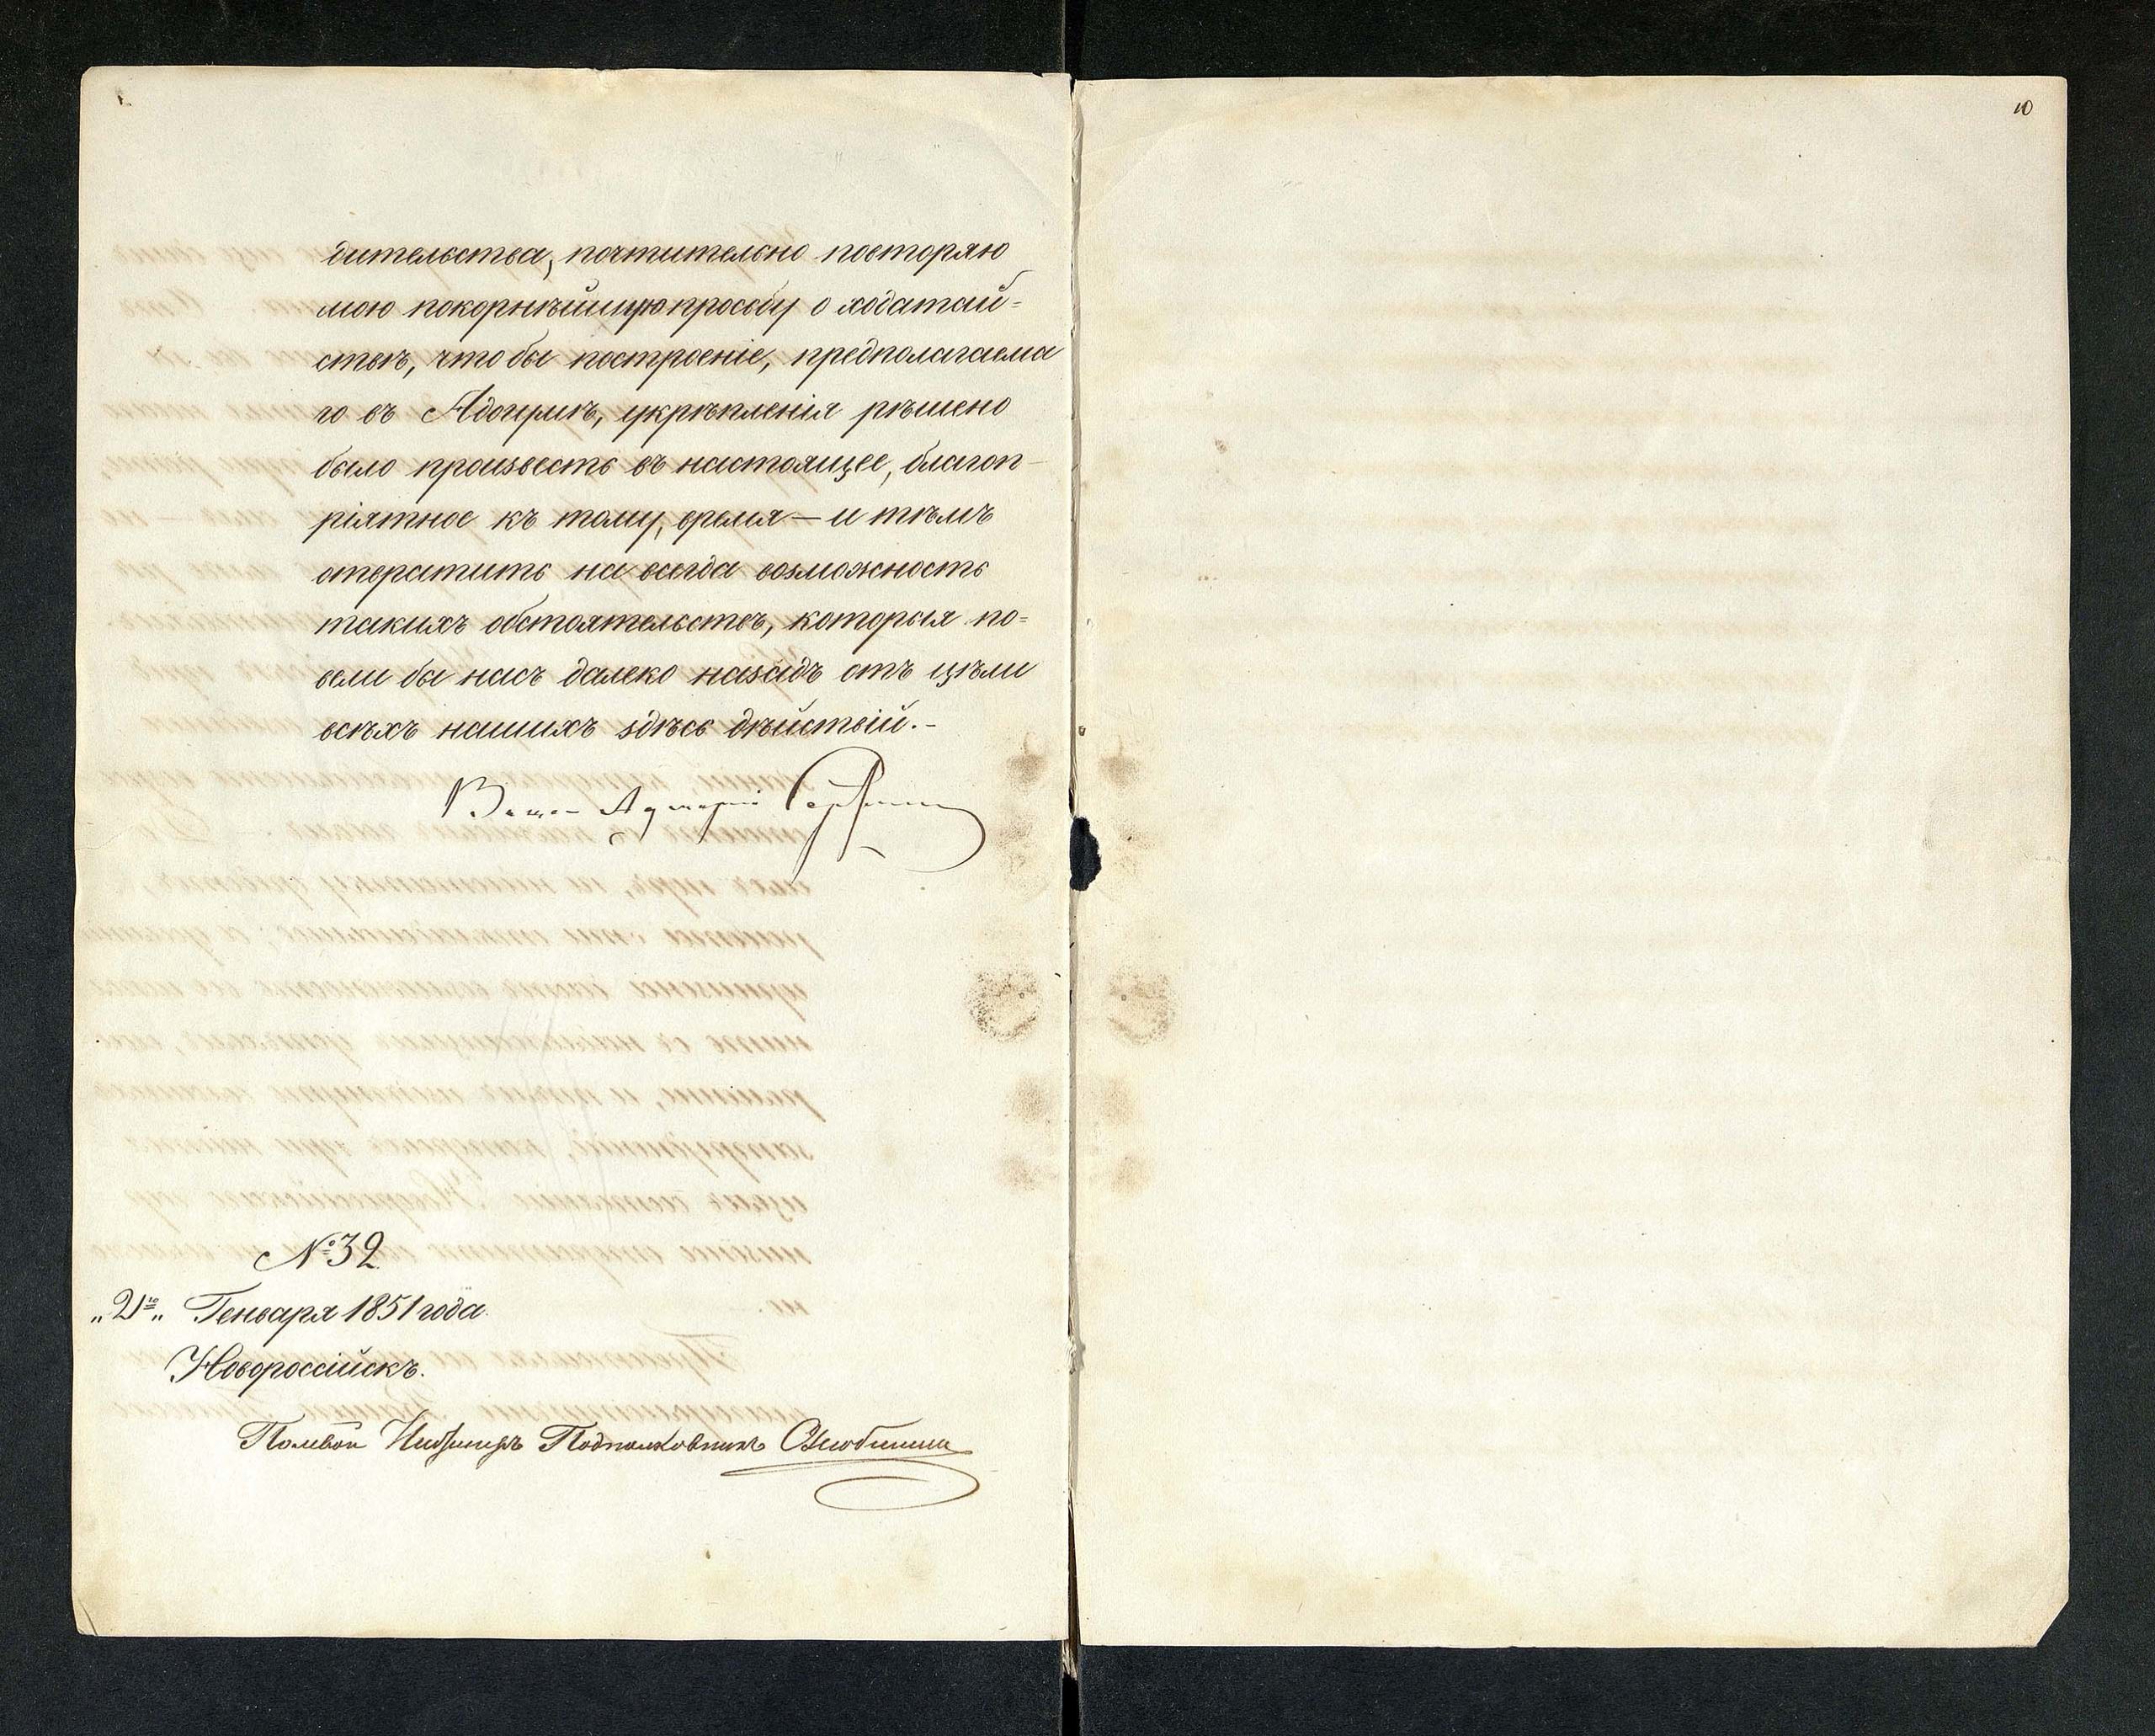 10
дительства, почтительно повторяю
мою покорнѣйшую прозьбу о ходатай=
ствѣ, что бы построеніе, предполагаема
го въ Адагумѣ, укрѣпленія рѣшено
было произвесть въ настоящее, благоп-
ріятное къ тому, время — и тѣмъ
отвратить на всегда возможность
такихъ обстоятельствъ, которыя по=
вели бы насъ далеко назадъ отъ цѣли
всѣхъ нашихъ здѣсь дѣйствій.-
Вице-Адмиралъ
№ 32
Генваря 1851 года.
Новороссійскъ.
Полевой Инженеръ Подполковникъ